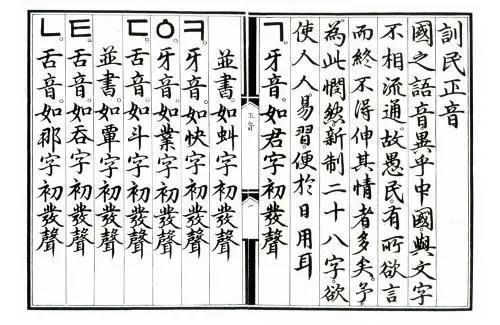 訓民正音
國之語音。異乎中國。與文字
不相流通。故愚民有所欲言
而終不得伸其情者多矣。予
為此憫然。新制二十八字。欲
使人人易習。便於日用耳
ㄱ。牙音。如君字初發聲
正音
並書。如虯字初發聲
ㅋ。牙音。如快字初發聲
ㆁ。牙音。如業字初發聲
ㄷ。舌音。如斗字初發聲
並書。如覃字初發聲
ㅌ。舌音。如吞字初發聲
ㄴ。舌音。如那字初發聲